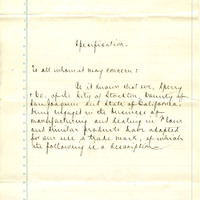 Specification.
To all whom it may concern:
Be it known that we, Sperry
& Co. of the City of Stockton, County of
San Joaquin and State of California,
being engaged in the business of
manufacturing and dealing in Flour
and similar products have adopted
for our use a trade mark, of which
the following is a description